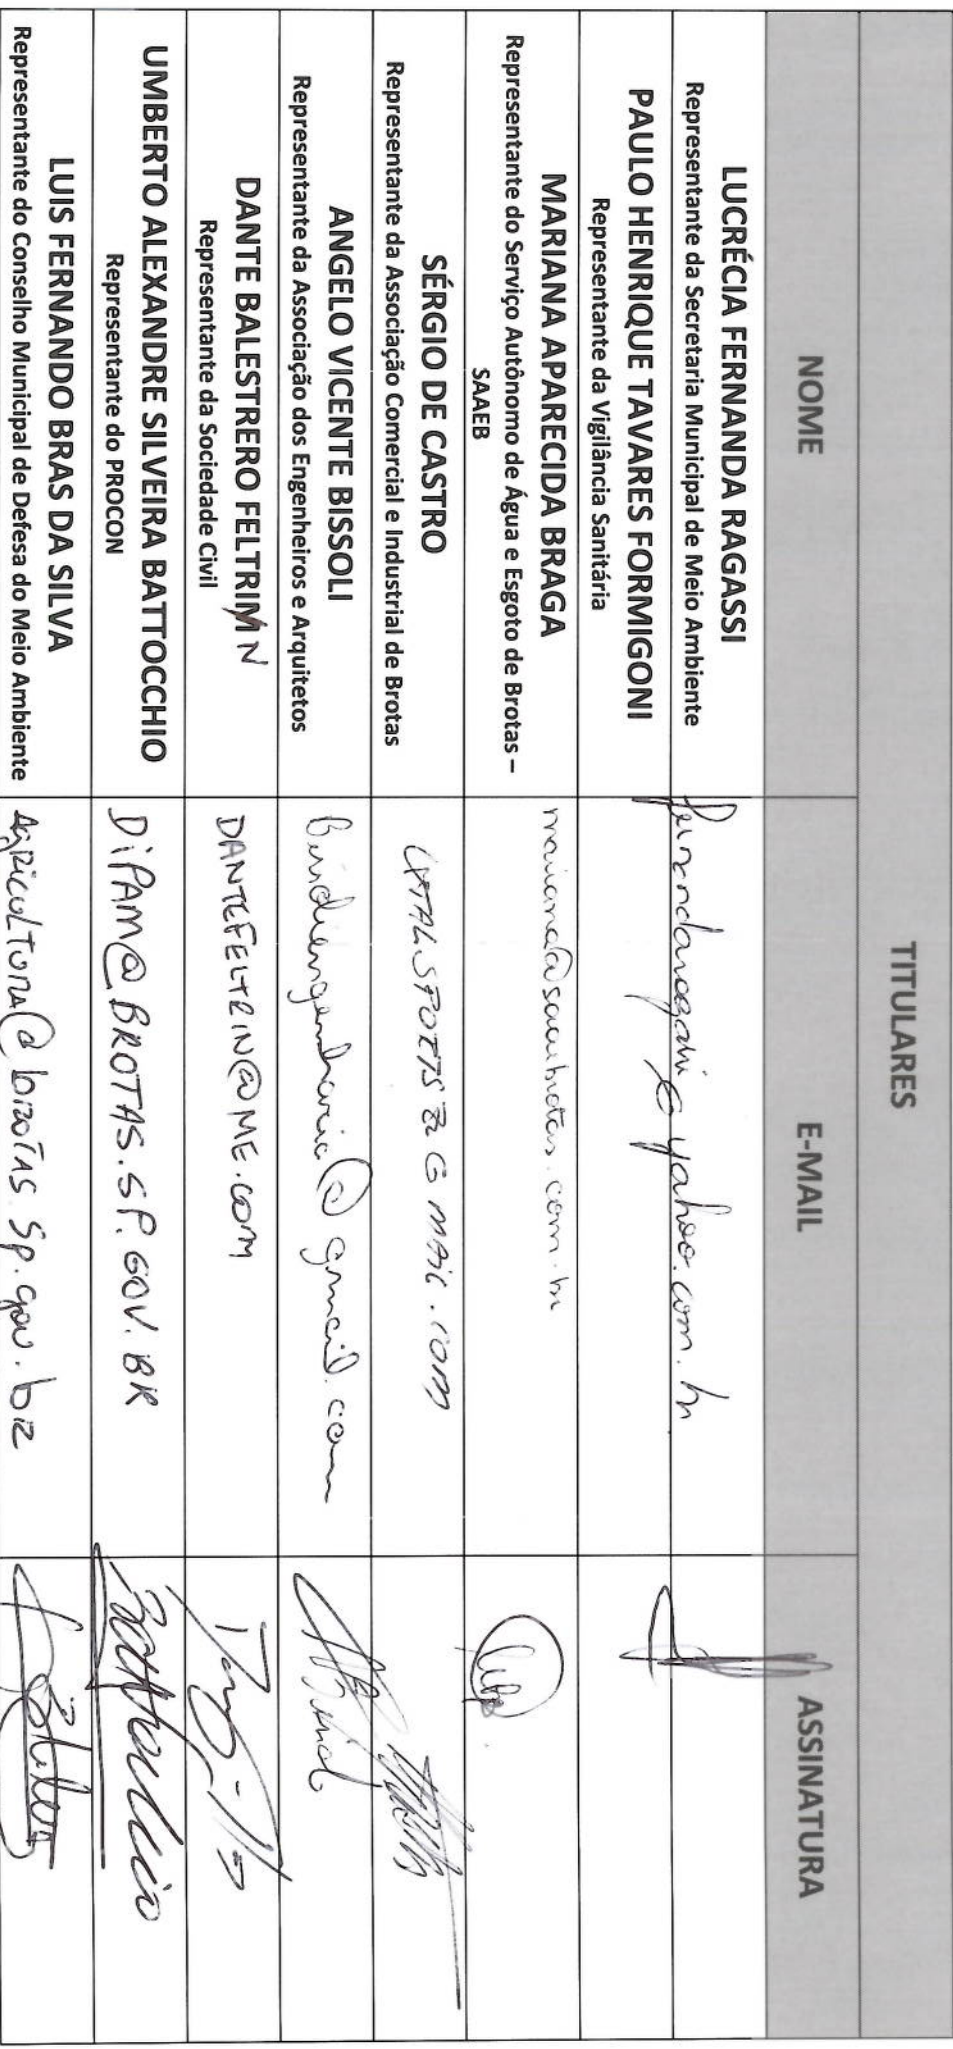 TITULARES
NOME E-MAIL ASSINATURA
LUCRÉCIA FERNANDA RAGASSI
Representante da Secretaria Municipal de Meio Ambiente
fernandaragassi@yahoo.com.br
PAULO HENRIQUE TAVARES FORMIGONI
Representante da Vigilância Sanitária
MARIANA APARECIDA BRAGA
Representante do Serviço Autônomo de Água e Esgoto de Brotas –
SAAEB
mariana@saaebrotas.com.br
SÉRGIO DE CASTRO
Representante da Associação Comercial e Industrial de Brotas
ANGELO VICENTE BISSOLI
Representante da Associação dos Engenheiros e Arquitetos
DANTE BALESTRERO FELTRIN
Representante da Sociedade Civil
DANTEFELTRIN@ME.COM
UMBERTO ALEXANDRE SILVEIRA BATTOCCHIO
Representante do PROCON
DIPAM@BROTAS.SP.GOV.BR
LUIS FERNANDO BRAS DA SILVA
Representante do Conselho Municipal de Defesa do Meio Ambiente
AgRicuLTuRA@bRoTAS.Sp.gov.bR